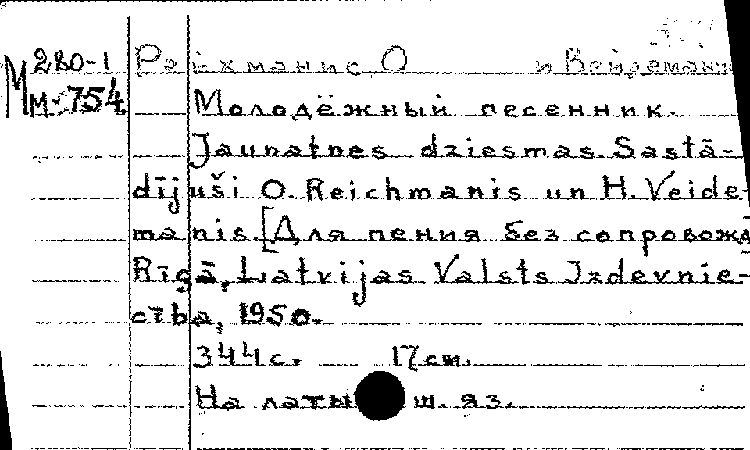 М 280-1 Рейхманис, О и Вейдеманис
М-754
Молодёжный песенник.
Jaunatnes dziesmas. Sastā-
dījuši O. Reichmanis un H. Veide-
manis. [Для пения без сопровожд
Rīgā, Latvijas Valsts Izdevnie-
cība, 1950.
344 с. 17 см.
На латыш. яз.